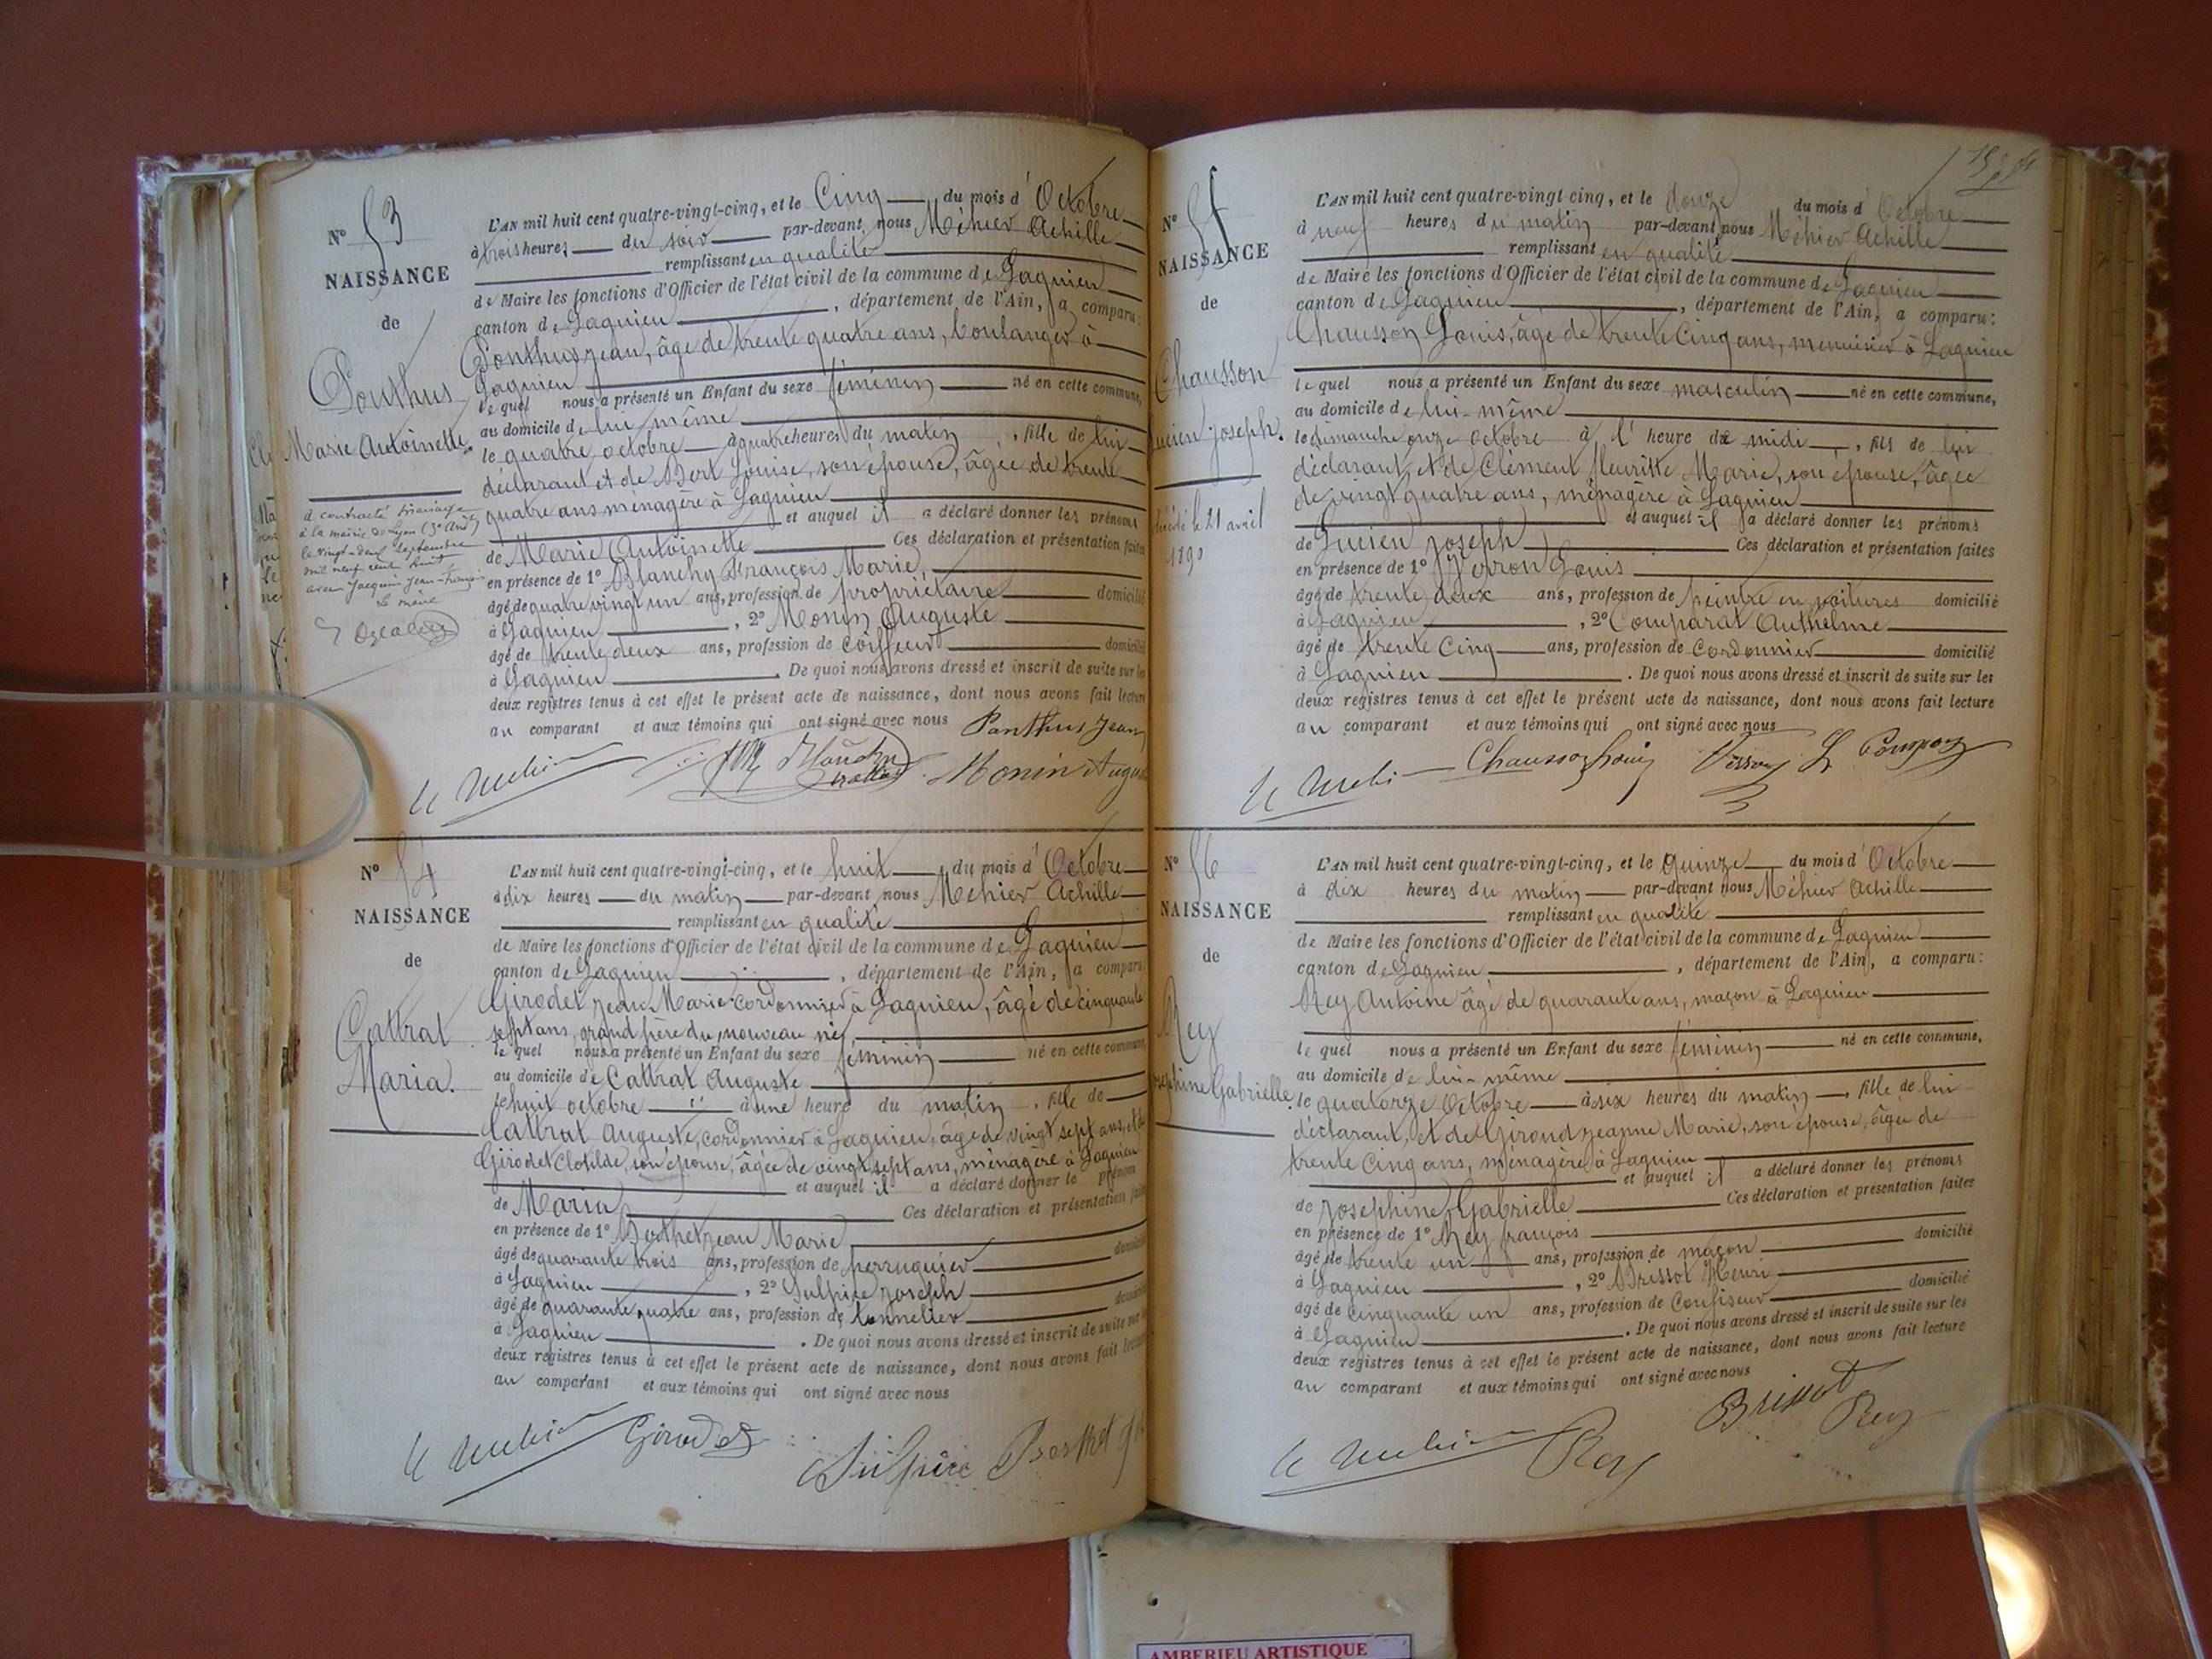 N° 53
NAISSANCE
de
Ponthus
Marie Antoinette
a contracté mariage
à la mairie de Lyon (3e Arrt)
le vingt-deux septembre
mil neuf cent huit
avec Jacquin Jean-François
Le maire
L'AN mil huit cent quatre-vingt-cinq, et le Cinq du mois d'Octobre
à trois heures du soir par-devant nous Méhier Achille
remplissant en qualité
de Maire les fonctions d'Officier de l'état civil de la commune de Lagnieu
canton de Lagnieu, département de l'Ain, a comparu:
Ponthus Jean, âgé de trente quatre ans, boulanger à
Lagnieu
le quel nous a présenté un Enfant du sexe féminin né en cette commune,
au domicile de lui même
le quatre octobre à quatre heures du matin, fille de lui
déclarant et de Bert Louise, son épouse, âgée de trente
quatre ans ménagère à Lagnieu
et auquel il a déclaré donner les prénoms
de Marie Antoinette Ces déclaration et présentation faites
en présence de 1° Blanchy François Marie,
âgé de quatre vingt un ans, profession de propriétaire domicilié
à Lagnieu, 2° Monin Auguste
âgé de trente deux ans, profession de coiffeur domicilié
à Lagnieu. De quoi nous avons dressé et inscrit de suite sur les
deux registres tenus à cet effet le présent acte de naissance, dont nous avons fait lecture
au comparant et aux témoins qui ont signé avec nous Ponthus Jean
Monin Augu
N° 54
NAISSANCE
de
Cattrat
Maria.
L'AN mil huit cent quatre-vingt-cinq, et le huit du mois d'Octobre
à dix heures du matin par-devant nous Méhier Achille
remplissant en qualité
de Maire les fonctions d'Officier de l'état civil de la commune de Lagnieu
canton de Lagnieu, département de l'Ain, a comparu:
Girodet Jean Marie cordonnier à Lagnieu, âgé de cinquante
sept ans, grand père du nouveau né,
le quel nous a présenté un Enfant du sexe féminin né en cette commune,
au domicile de Cattrat Auguste
le huit octobre à une heure du matin, fille de
Cattrat Auguste, cordonnier à Lagnieu, âgé de vingt sept ans, et de
Girodet Clotilde, son épouse, âgée de vingt sept ans, ménagère à Lagnieu
et auquel il a déclaré donner le prénom
de Maria Ces déclaration et présentation faites
en présence de 1° Berthet Jean Marie
âgé de quarante trois ans, profession de perruquier domicilié
à Lagnieu, 2° Sulpice Joseph
âgé de quarante quatre ans, profession de tonnelier domicilié
à Lagnieu. De quoi nous avons dressé et inscrit de suite sur les
deux registres tenus à cet effet le présent acte de naissance, dont nous avons fait lecture
au comparant et aux témoins qui ont signé avec nous
Girodet
Sulpice Berthet
N° 55
NAISSANCE
de
Chausson
Lucien Joseph.
décédé le 21 avril
1890
L'AN mil huit cent quatre-vingt-cinq, et le douze du mois d'Octobre
à neuf heures du matin par-devant nous Méhier Achille
remplissant en qualité
de Maire les fonctions d'Officier de l'état civil de la commune de Lagnieu
canton de Lagnieu, département de l'Ain, a comparu:
Chausson Louis, âgé de trente cinq ans, menuisier à Lagnieu
le quel nous a présenté un Enfant du sexe masculin né en cette commune,
au domicile de lui-même
le dimanche onze octobre à l'heure de midi, fils de lui
déclarant, et de Clément fleuritte Marie, son épouse, âgée
de vingt quatre ans, ménagère à Lagnieu
et auquel il a déclaré donner les prénoms
de Lucien Joseph Ces déclaration et présentation faites
en présence de 1° Verron Louis
âgé de trente deux ans, profession de peintre en voitures domicilié
à Lagnieu, 2° Comparat Anthelme
âgé de trente cinq ans, profession de cordonnier domicilié
à Lagnieu. De quoi nous avons dressé et inscrit de suite sur les
deux registres tenus à cet effet le présent acte de naissance, dont nous avons fait lecture
au comparant et aux témoins qui ont signé avec nous
Chausson Louis
N° 56
NAISSANCE
de
Rey
Josephine Gabrielle.
L'AN mil huit cent quatre-vingt-cinq, et le Quinze du mois d'Octobre
à dix heures du matin par-devant nous Méhier Achille
remplissant en qualité
de Maire les fonctions d'Officier de l'état civil de la commune de Lagnieu
canton de Lagnieu, département de l'Ain, a comparu:
Rey Antoine âgé de quarante ans, maçon à Lagnieu
le quel nous a présenté un Enfant du sexe féminin né en cette commune,
au domicile de lui-même
le quatorze Octobre à six heures du matin, fille de lui
déclarant, et de Girond Jeanne Marie, son épouse, âgée de
trente cinq ans, ménagère à Lagnieu
et auquel il a déclaré donner les prénoms
de Josephine Gabrielle Ces déclaration et présentation faites
en présence de 1° Rey françois
âgé de trente un ans, profession de maçon domicilié
à Lagnieu, 2° Brissot Henri
âgé de cinquante un ans, profession de confiseur domicilié
à Lagnieu. De quoi nous avons dressé et inscrit de suite sur les
deux registres tenus à cet effet le présent acte de naissance, dont nous avons fait lecture
au comparant et aux témoins qui ont signé avec nous
Brissot
Rey Rey
AMBERIEU ARTISTIQUE